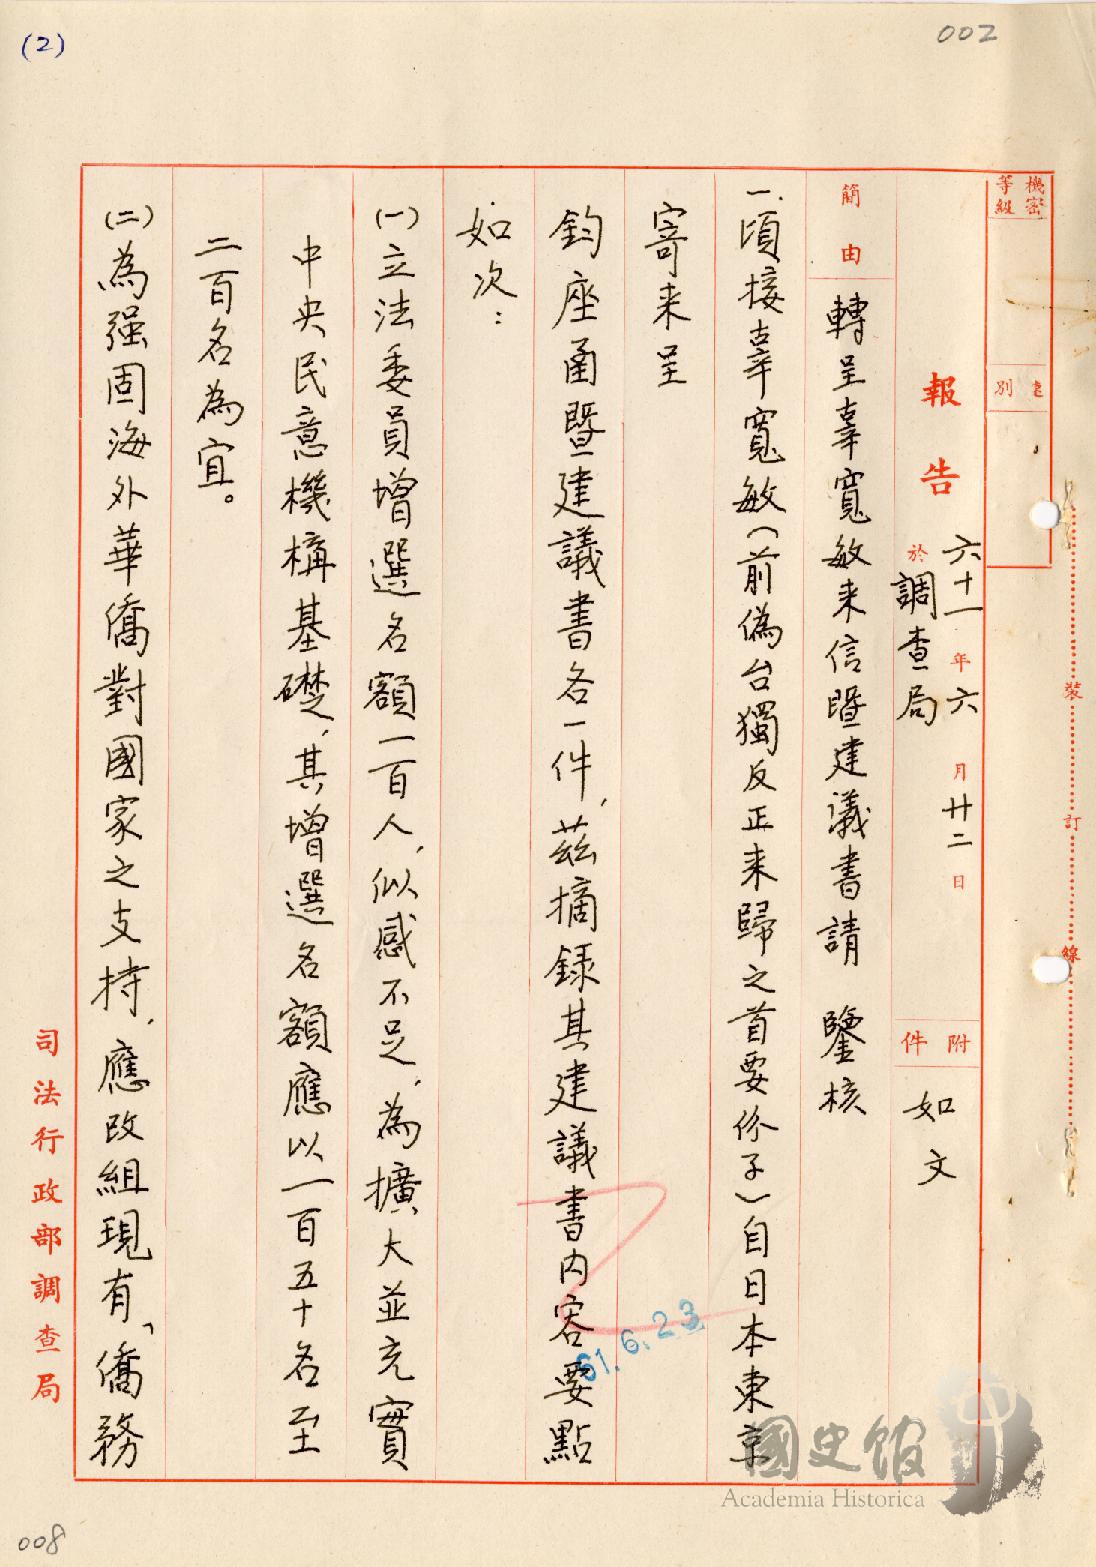 (2)
002
機密等級
速別
報告
六十一年六月廿二日
於調查局
附件
如文
簡由
轉呈辜寬敏来信暨建議書請　鑒核
一、頃接辜寬敏(前偽台獨反正来歸之首要份子)自日本東京
寄来呈
鈞座函暨建議書各一件，茲摘録其建議書内容要點
如次：
(一)立法委員增選名額一百人，似感不足，為擴大並充實
中央民意機構基礎，其增選名額應以一百五十名至
二百名為宜。
(二)為强固海外華僑對國家之支持，應改組現有「僑務
司法行政部調查局
裝訂線
61.6.23
國史館
Academia Historica
008